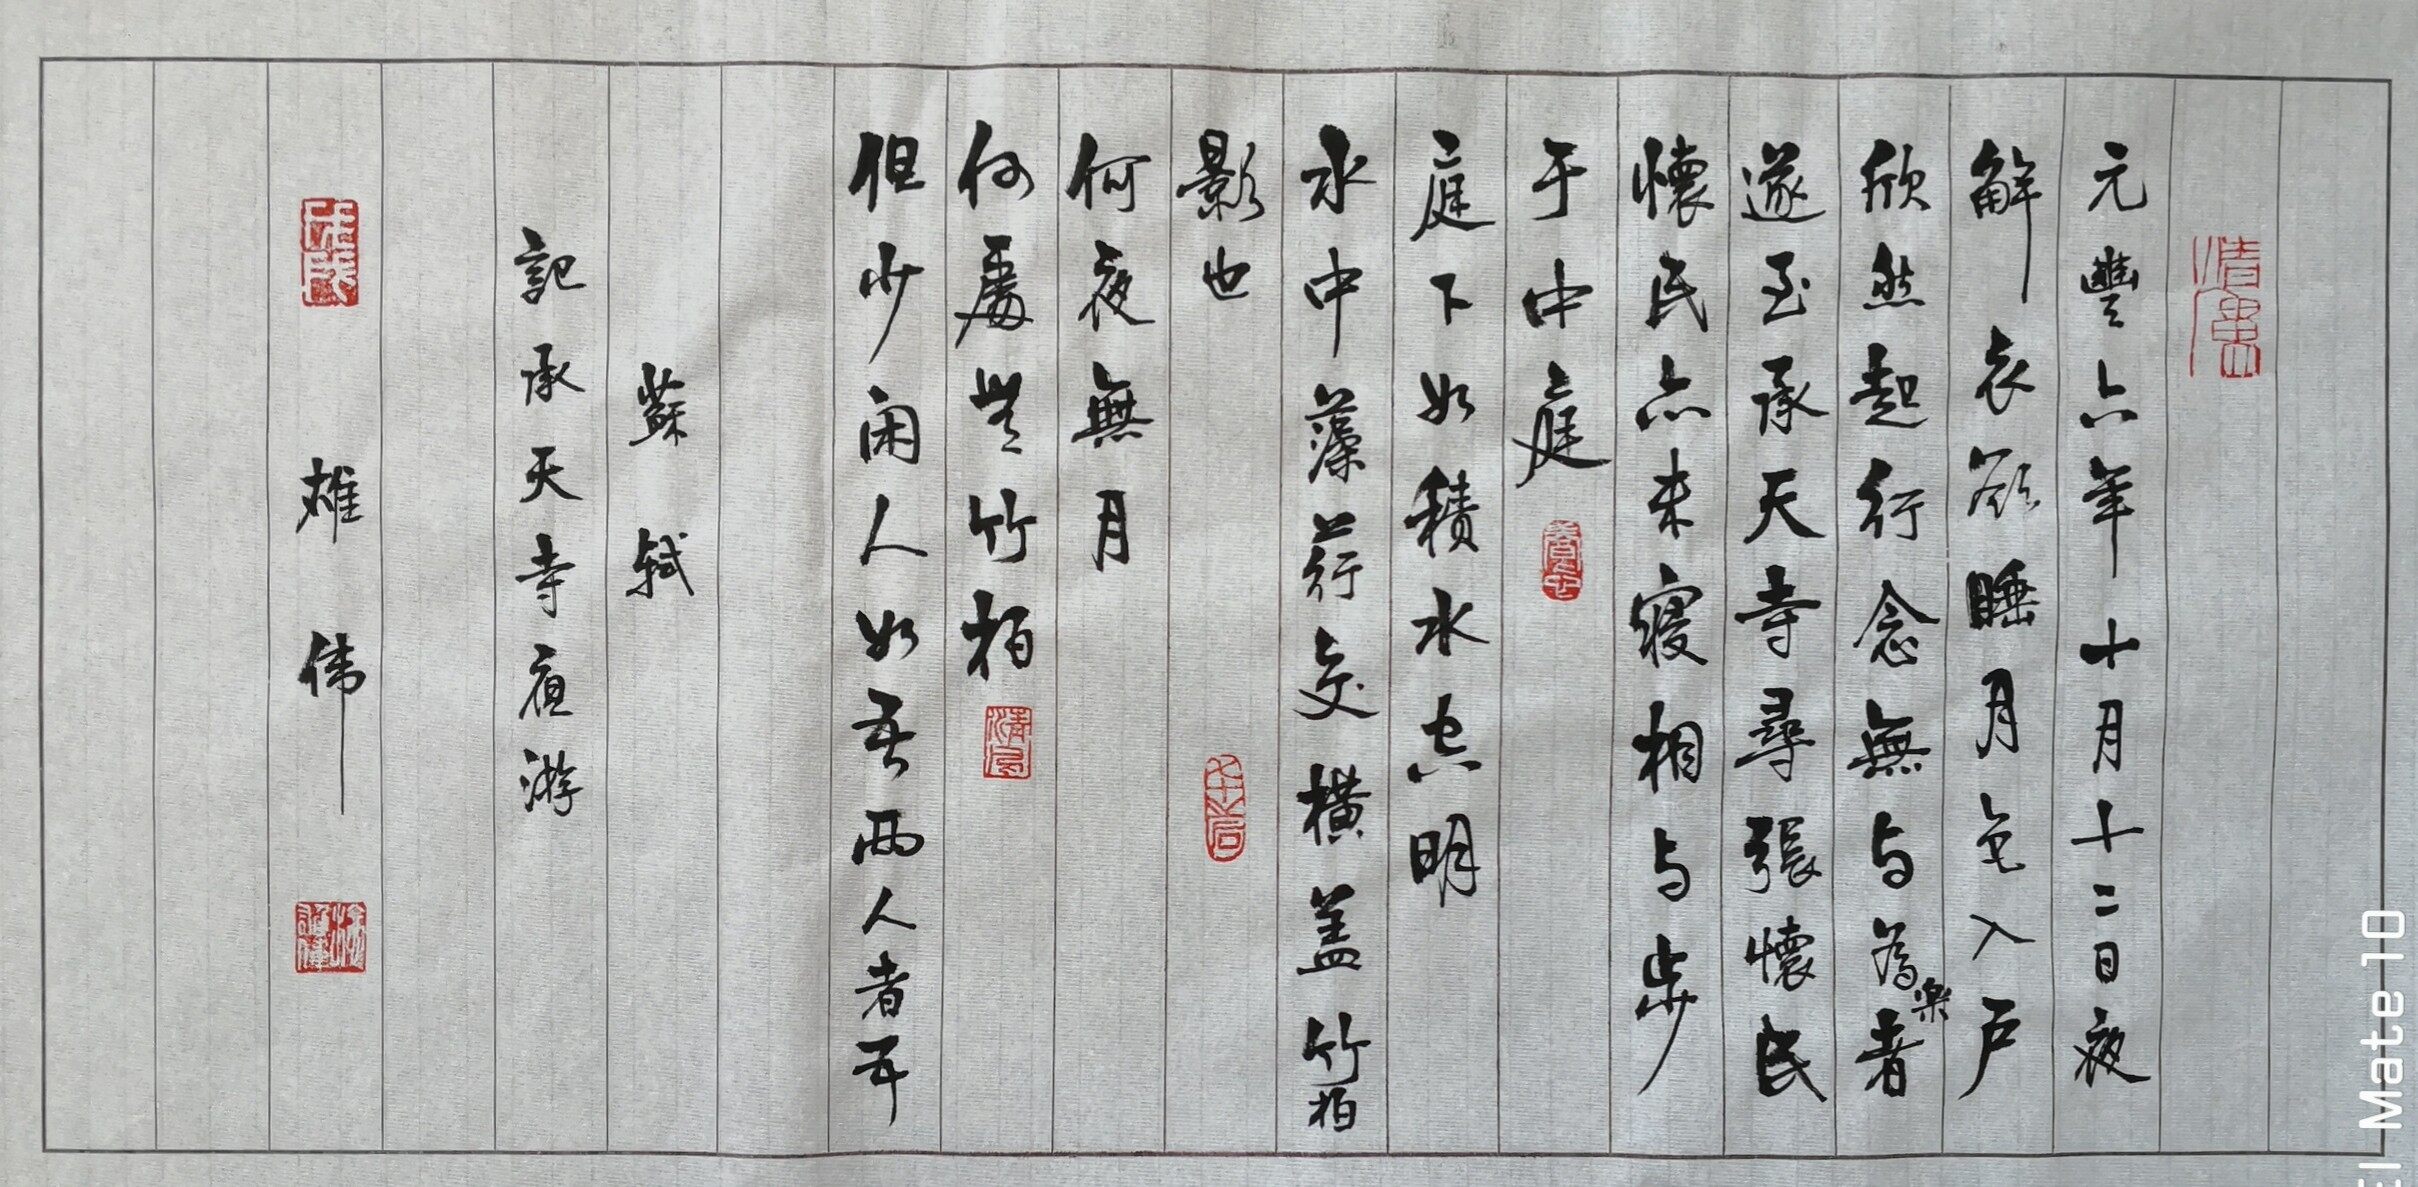 元豐六年十月十二日夜
解衣欲睡月色入户
欣然起行念無与為樂者
遂至承天寺尋張懷民
懷民亦未寢相与步
于中庭
庭下如積水空明
水中藻荇交橫盖竹柏
影也
何夜無月
何處無竹柏
但少闲人如吾两人者耳
蘇軾
記承天寺夜游
雄伟
EI Mate 10